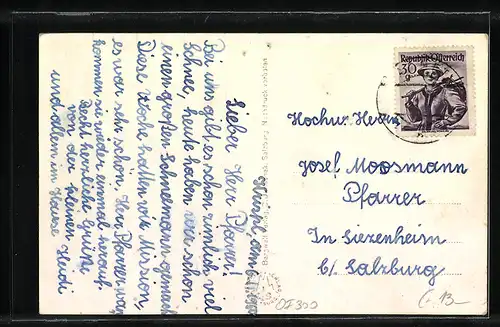 Lieber Herr Pfarrer!
Bei uns gibt es schon ziemlich viel
Schnee, heute haben wir schon
einen großen Schneemann gemacht
Diese Woche hatten wir Mission,
es war sehr schön, Herr Pfarrer, wann
kommen sie wieder einmal herauf.
Recht herzliche Grüße
von der kleinen Heidi
und allem im Hause
Republik Österreich
30
Hochw. Herrn
Josef Moosmann
Pfarrer
In Siezenheim
b/ Salzburg